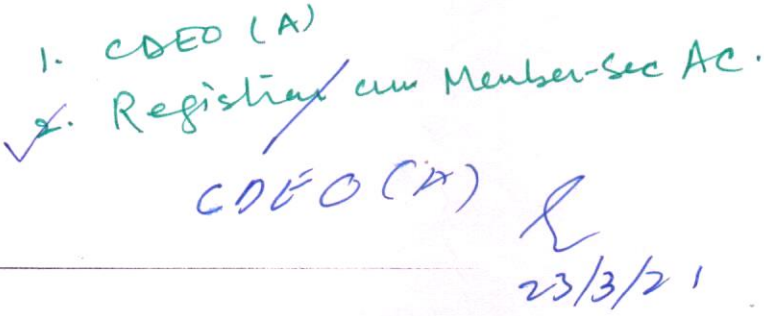 1. CDEO (A)
2. Registrar cum Member-Sec AC.
CDEO (A)
23/3/21